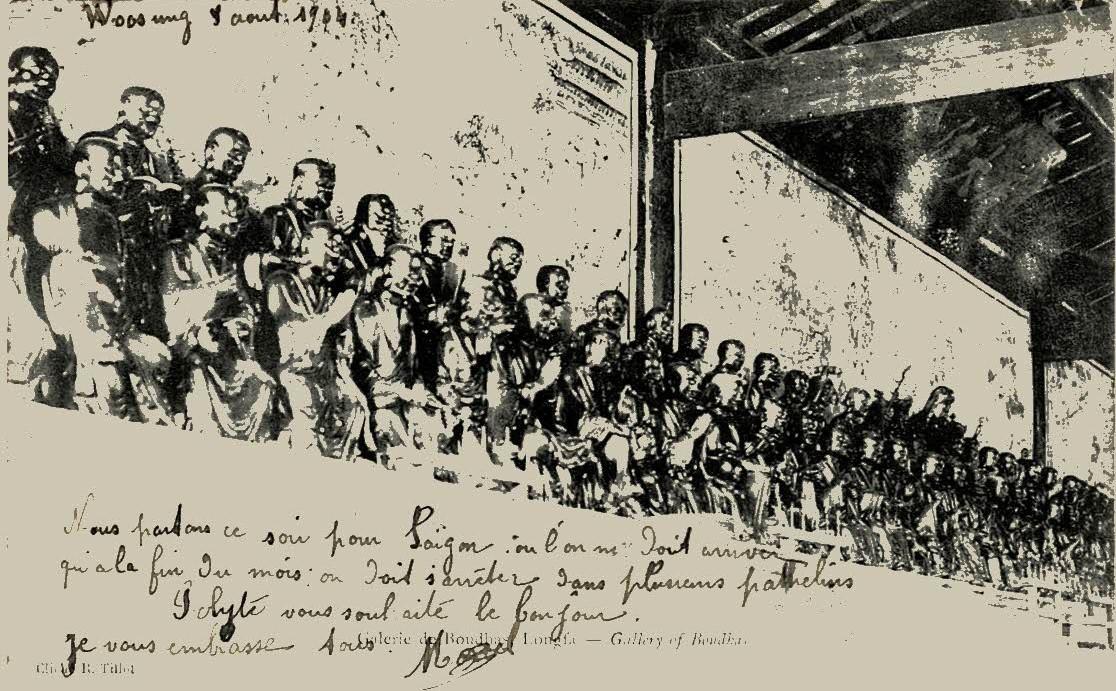 Woosung 8 aout 1904
Nous partons ce soir pour Saïgon : ou l'on ne doit arriver
qu'a la fin du mois : on doit s'arrêter dans plusieurs pathelins
vous souhaite le bonjour.
Je vous embrasse tous.
Galerie de Boudhas Longfa — Gallery of Boudhas
Cliché R. Tillot